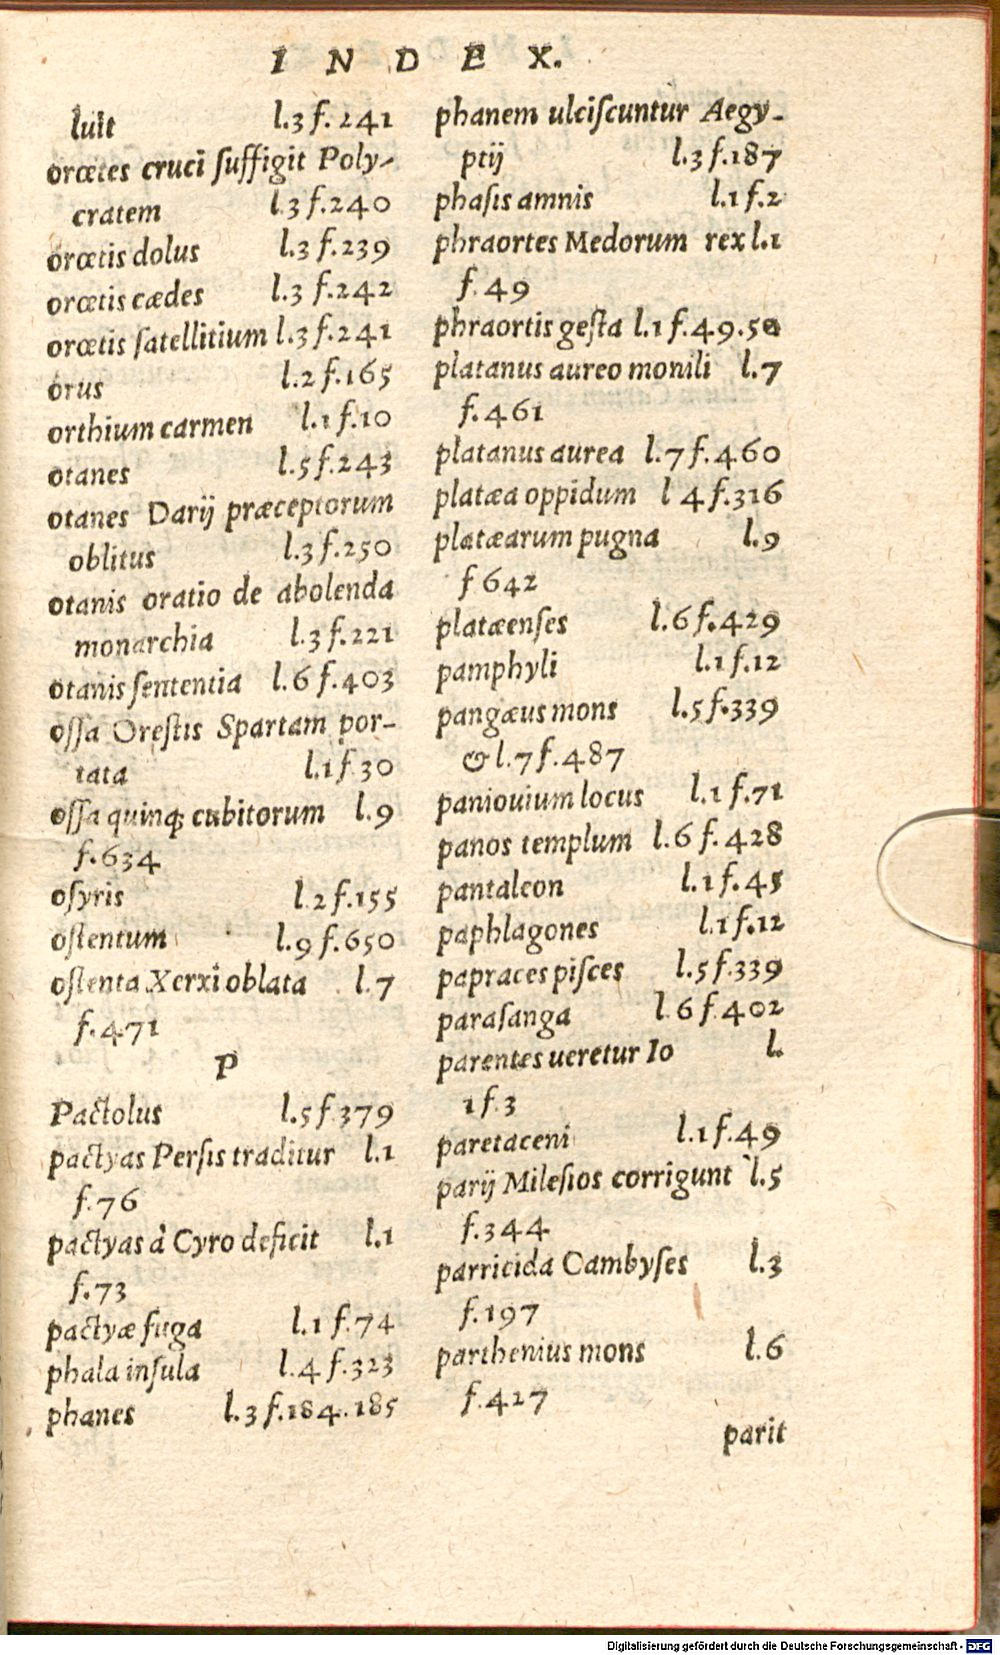 INDEX.
luit l.3 f. 241
orœtes cruci ſuffigit Poly-
cratem l.3 f.240
orœtis dolus l.3 f.239
orœtis cædes l.3 f.242
orœtis ſatellitium l.3 f.241
orus l.2 f.165
orthium carmen l.1 f.10
otanes l.5 f.243
otanes Darij præceptorum
oblitus l.3 f.250
otanis oratio de abolenda
monarchia l.3 f.221
otanis ſententia l.6 f.403
oſſa Oreſtis Spartam por-
tata l.1 f.30
oſſa quinq; cubitorum l.9
f.634
oſyris l.2 f.155
oſtentum l.9 f.650
oſtenta Xerxi oblata l.7
f.471
P
Pactolus l.5 f.379
pactyas Perſis traditur l.1
f.76
pactyas à Cyro deficit l.1
f.73
pactyæ fuga l.1 f.74
phala inſula l.4 f.323
phanes l.3 f.184.185
phanem ulciſcuntur Aegy-
ptij l.3 f.187
phaſis amnis l.1 f.2
phraortes Medorum rex l.1
f.49
phraortis geſta l.1 f.49.50
platanus aureo monili l.7
f.461
platanus aurea l.7 f.460
platæa oppidum l 4 f.316
platæarum pugna l.9
f 642
platæenſes l.6 f.429
pamphyli l.1 f.12
pangæus mons l.5 f.339
& l.7 f.487
paniouium locus l.1 f.71
panos templum l.6 f.428
pantaleon l.1 f.45
paphlagones l.1 f.12
papraces piſces l.5 f.339
paraſanga l.6 f.402
parentes ueretur Io l.
1 f.3
paretaceni l.1 f.49
parij Mileſios corrigunt l.5
f.344
parricida Cambyſes l.3
f.197
parthenius mons l.6
f.427
parit
Digitalisierung gefördert durch die Deutsche Forschungsgemeinschaft - DFG